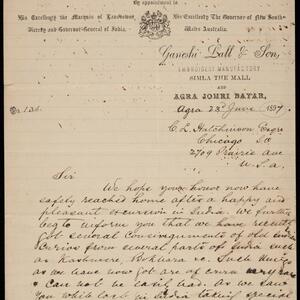 By appointment to
His Excellency the Marquis of Lansdowne,
Viceroy and Governor-General of India,
His Excellency The Governor of New South
Wales Australia.
Ganeshi Lall & Son,
EMBROIDERY MANUFACTORY
SIMLA THE MALL
AND
AGRA JOHRI BAZAR,
Agra 23rd June 1897
C. L. Hutchinson Esqre
Chicago
2709 Prairie Ave
U.S.A.
Sir
We hope your honor now have
safely reached home after a happy and
pleasant excursion in India We further
beg to inform you that we have
got several consignments of old
from several parts of India such
as Kashmere, Bokhara &c. Such
as we have now got are of
can not be easily had. As we saw
you while in India taking special